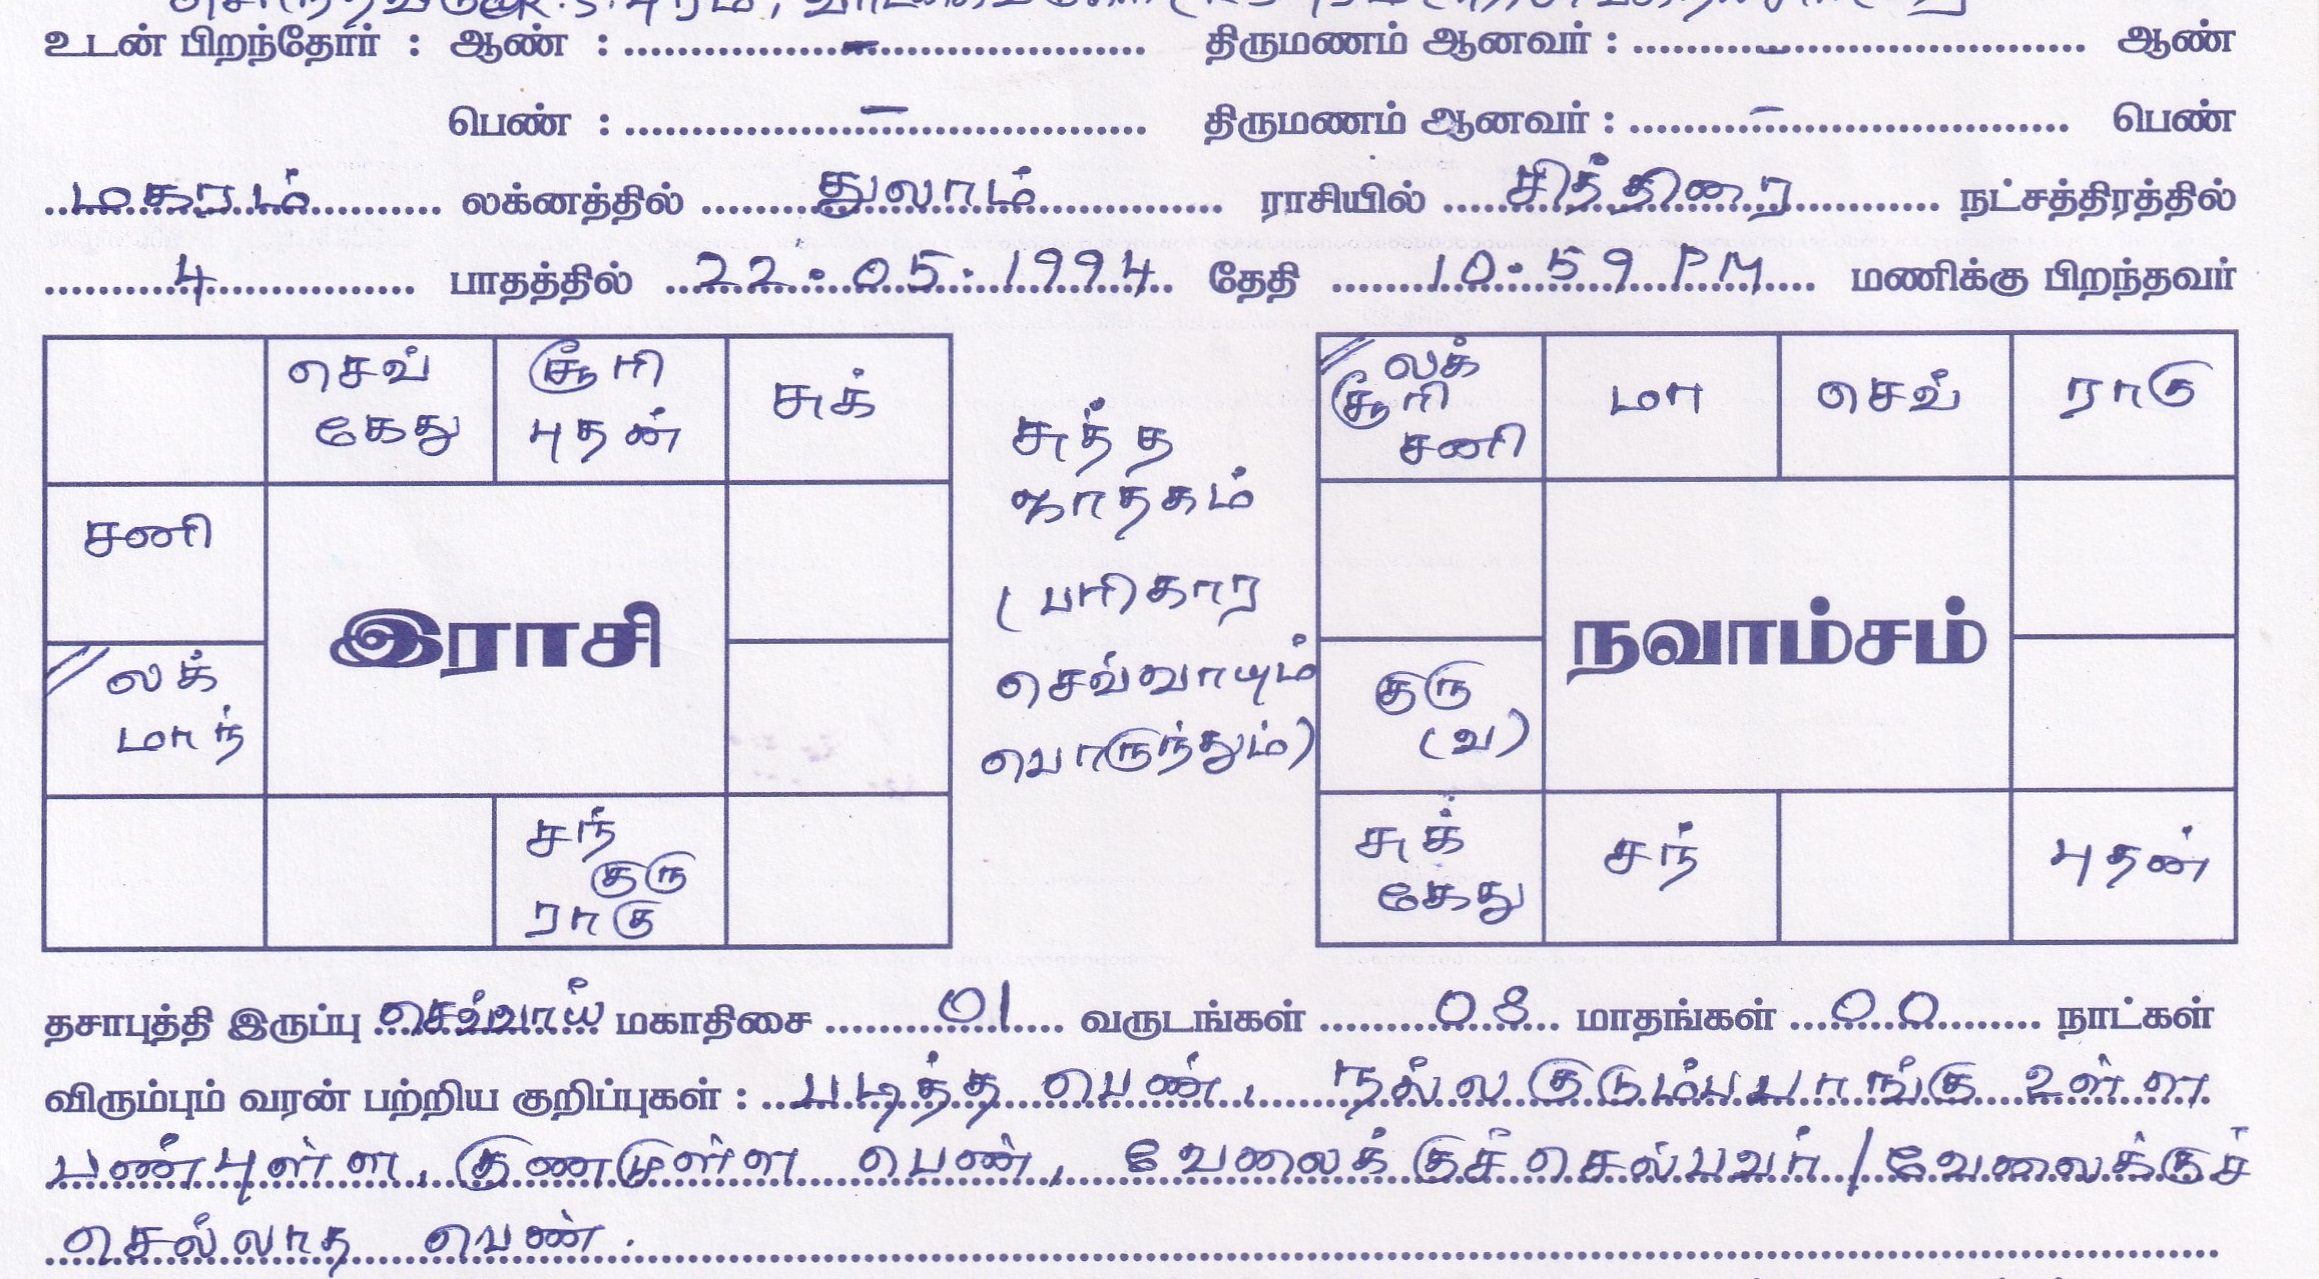 உடன் பிறந்தோர் : ஆண் : ......–...... திருமணம் ஆனவர் : ......–...... ஆண்
பெண் : ......–...... திருமணம் ஆனவர் : ......–...... பெண்
மகரம் லக்னத்தில் துலாம் ராசியில் சித்திரை நட்சத்திரத்தில்
4 பாதத்தில் 22.05.1994 தேதி 10.59 PM மணிக்கு பிறந்தவர்
செவ் கேது
சூரி புதன்
சுக்
சனி
இராசி
லக் மாந்
சந் குரு ராகு
சுத்த
ஜாதகம்
(பரிகார
செவ்வாயும்
பொருந்தும்)
லக் சூரி சனி
மா
செவ்
ராகு
நவாம்சம்
குரு (வ)
சுக் கேது
சந்
புதன்
தசாபுத்தி இருப்பு செவ்வாய் மகாதிசை 01 வருடங்கள் 08 மாதங்கள் 00 நாட்கள்
விரும்பும் வரன் பற்றிய குறிப்புகள் : படித்த பெண், நல்ல குடும்பபாங்கு உள்ள
பண்புள்ள, குணமுள்ள பெண், வேலைக்குச்செல்பவர் / வேலைக்குச்
செல்லாத பெண்.